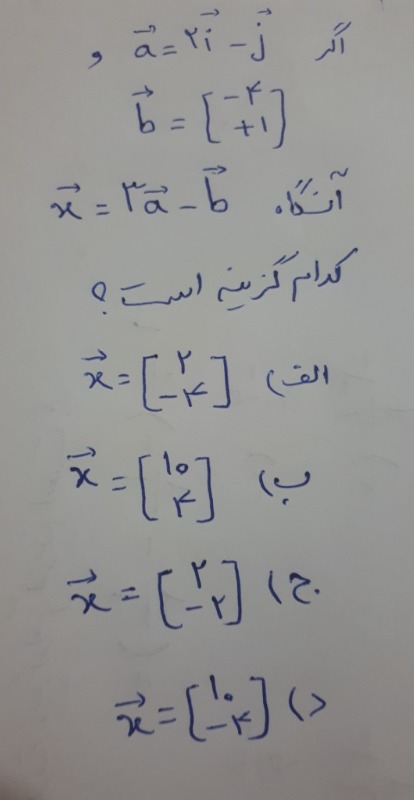 اگر a⃗ = ۲i⃗ - j⃗ و
b⃗ = [-۴ +۱]
آنگاه x⃗ = ۳a⃗ - b⃗
کدام گزینه است؟
الف) x⃗ = [۲ -۴]
ب) x⃗ = [۱۰ ۴]
ج) x⃗ = [۲ -۲]
د) x⃗ = [۱۰ -۴]